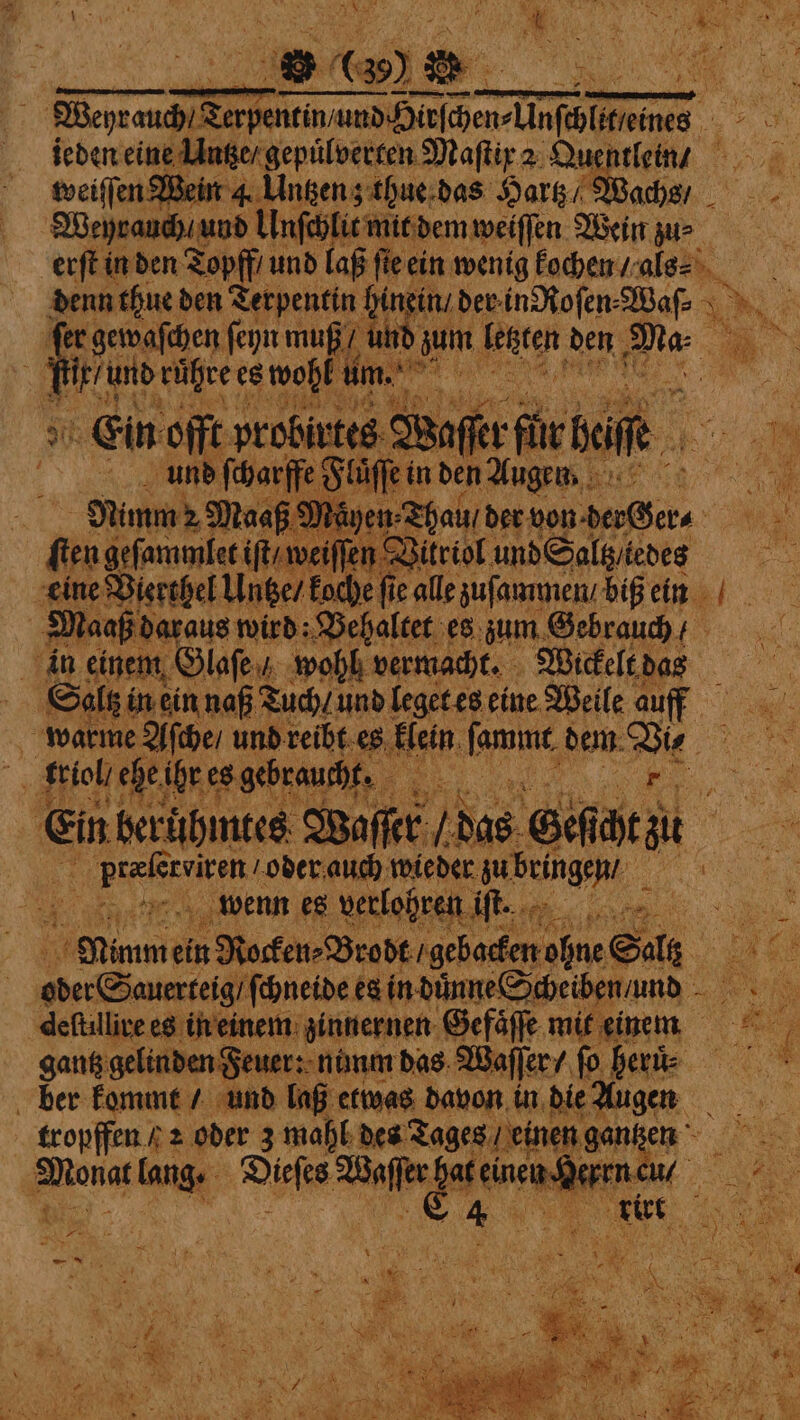 (39)
Weyrauch/ Terpentin/ und Hirſchen-Unſchlit/ eines
ieden eine Untze/ gepuͤlverten Maſtix 2 Quentlein/
weiſſen Wein 4. Untzen; thue das Hartz/ Wachs/
Weyrauch/ und Unſchlit mit dem weiſſen Wein zu-
erſt in den Topff/ und laß ſie ein wenig kochen/ als-
denn thue den Terpentin hinein/ der in Roſen-Waſ-
ſer gewaſchen ſeyn muß/ und zum letzten den Ma-
ſtix/ und ruͤhre es wohl um.
Ein offt probirtes Waſſer fuͤr heiſſe
und ſcharffe Fluͤſſe in den Augen.
Nimm 2 Maaß Maͤyen-Thau/ der von der Ger-
ſten geſammlet iſt/ weiſſen Vitriol und Saltz/ iedes
eine Vierthel Untze/ koche ſie alle zuſammen/ biß ein
Maaß daraus wird: Behaltet es zum Gebrauch/
in einem Glaſe/ wohl vermacht. Wickelt das
Saltz in ein naß Tuch/ und leget es eine Weile auff
warme Aſche/ und reibt es klein ſammt dem Vi-
triol/ ehe ihr es gebraucht.
Ein beruͤhmtes Waſſer/ das Geſicht zu
præſerviren/ oder auch wieder zu bringen/
wenn es verlohren iſt.
Nimm ein Rocken-Brodt/ gebacken ohne Saltz
oder Sauerteig/ ſchneide es in duͤnne Scheiben/ und
deſtillire es in einem zinnernen Gefaͤſſe mit einem
gantz gelinden Feuer: nimm das Waſſer/ ſo heruͤ-
ber kommt/ und laß etwas davon in die Augen
tropffen/ 2 oder 3 mahl des Tages/ einen gantzen
Monat lang. Dieſes Waſſer hat einen Herrn cu-
C 4 rirt